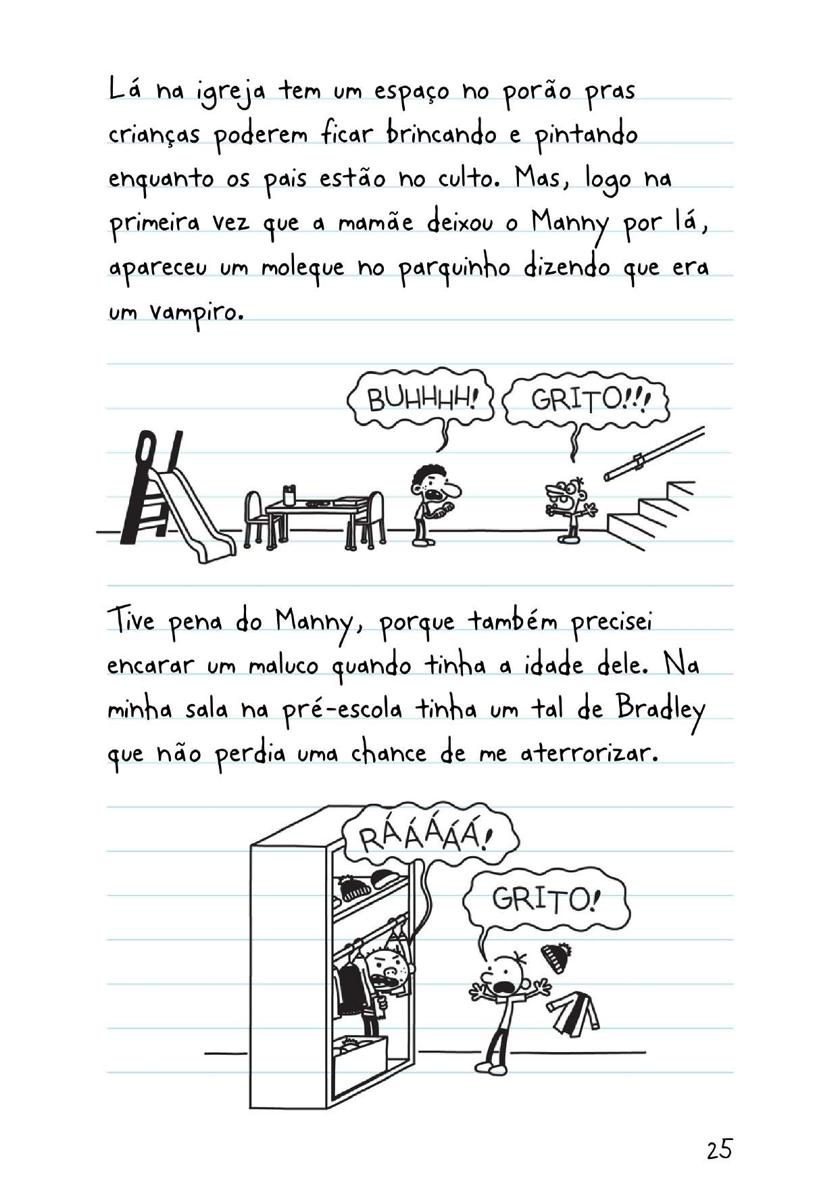 Lá na igreja tem um espaço no porão pras
crianças poderem ficar brincando e pintando
enquanto os pais estão no culto. Mas, logo na
primeira vez que a mamãe deixou o Manny por lá,
apareceu um moleque no parquinho dizendo que era
um vampiro.
BUHHHH!
GRITO!!!
Tive pena do Manny, porque também precisei
encarar um maluco quando tinha a idade dele. Na
minha sala na pré-escola tinha um tal de Bradley
que não perdia uma chance de me aterrorizar.
RÁÁÁÁÁ!
GRITO!
25